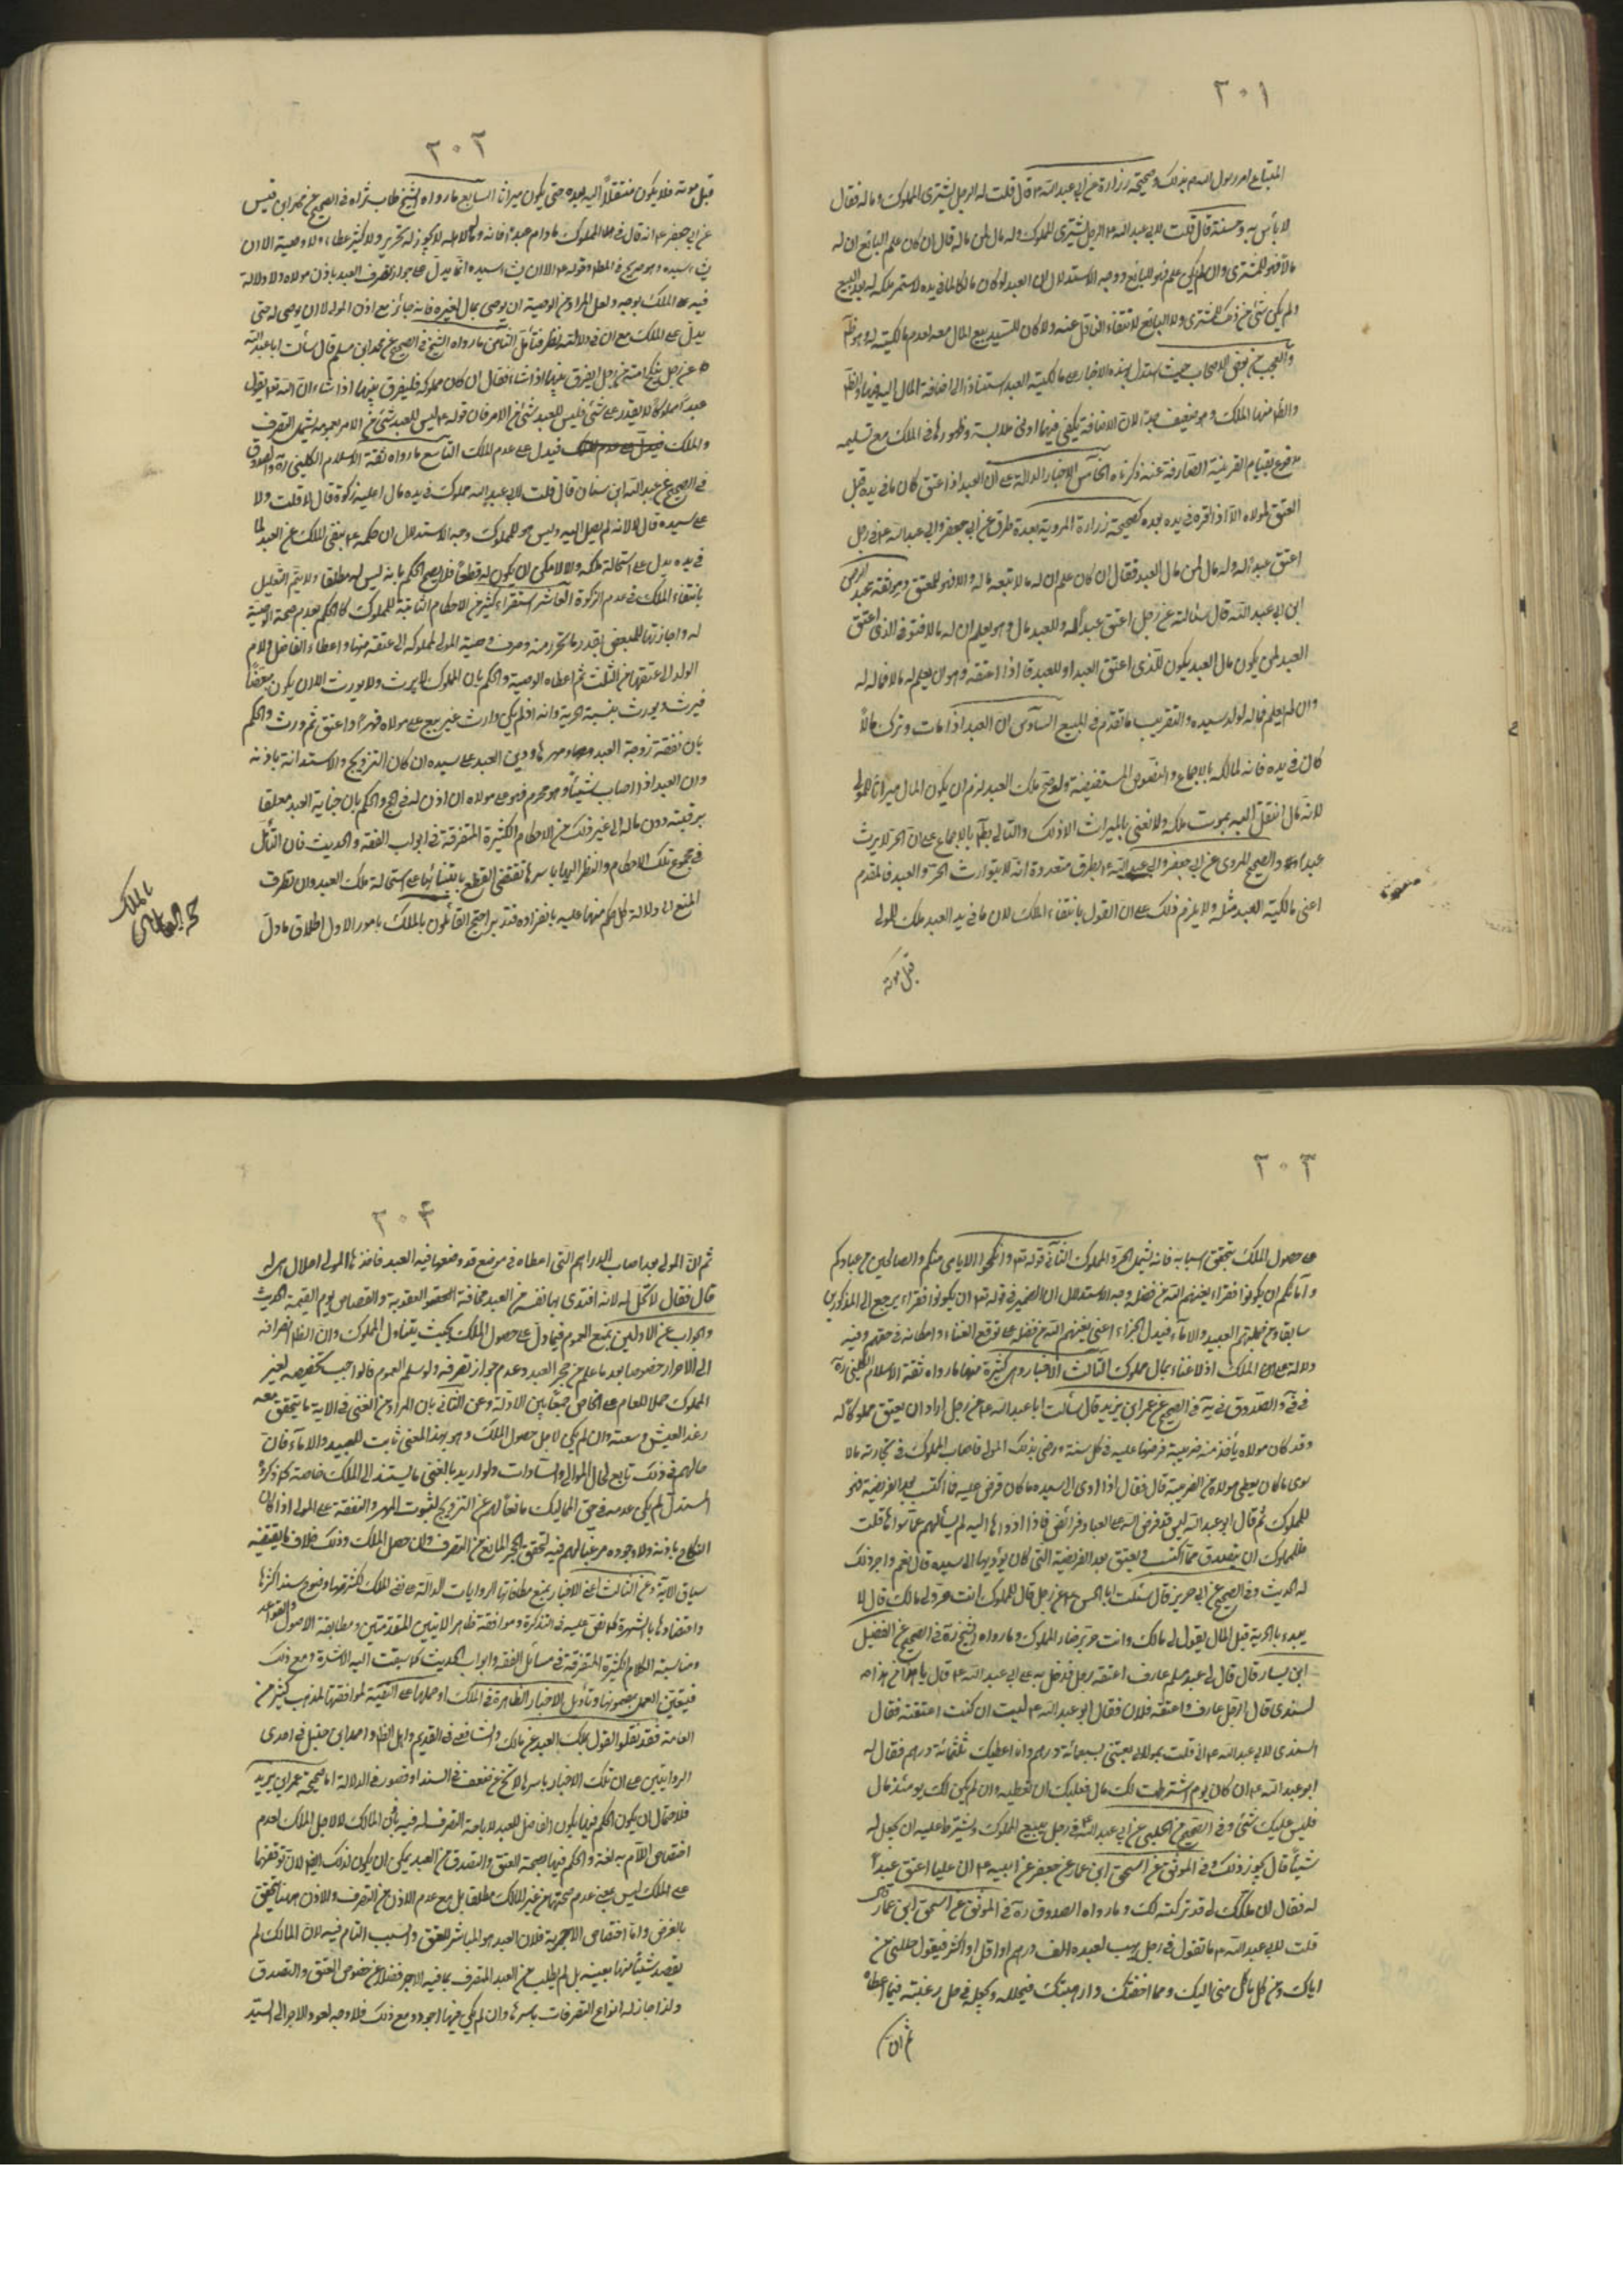 ٣٠١
المبتاع امر رسول الله بذلك وصحيحة زرارة عن ابي عبد الله ع قال قلت له الرجل يشتري المملوك وماله فقال
لا بأس به وحسنته قال قلت لابي عبد الله ع الرجل يشتري المملوك وله مال لمن ماله قال ان كان علم البايع ان له
مالا فهو للمشتري وان لم يكن علم فهو للبايع ووجه الاستدلال ان العبد لو كان مالكا لما في يده لاستمر ملكه له بعد البيع
ولم يكن شئ من ذلك للمشتري ولا البايع لانتفاء الناقل عنه ولا كان للسيد بيع المال معه لعدم مالكيته له وهو ظ
والعجب من بعض الاصحاب حيث استدل بهذه الاخبار على مالكية العبد استنادا الى اضافة المال اليه فيها
والظ منها الملك وهو ضعيف جدا لان الاضافة يكفي فيها ادنى ملابسة وظهورها في الملك مع تسليمه
مدفوع بقيام القرينة الصارفة عنه ذكرناه الخامس الاخبار الدالة على ان العبد اذا عتق كان ما في يده قبل
العتق لمولاه الا اذا اقره في يده بعده كصحيحة زرارة المروية بعدة طرق عن ابي جعفر وابي عبد الله ع في رجل
اعتق عبدا له وله مال لمن مال العبد فقال ان كان علم ان له مالا تبعه ماله والا فهو للمعتق وموثقة عبد الرحمن
ابن ابي عبد الله قال سئالته عن رجل اعتق عبدا له وللعبد مال وهو يعلم ان له مالا فتوفى الذي اعتق
العبد لمن يكون مال العبد يكون للذي اعتق العبد او للعبد قا اذا اعتقه وهو يعلم له مالا فماله له
وان لم يعلم فماله لولد سيده والتقريب ما تقدم في المبيع السادس ان العبد اذا مات وترك مالا
كان في يده فانه لمالكه بالاجماع والنصوص المستفيضة ولو صح ملك العبد لزم ان يكون المال ميراثا للمولى
لانه مال انتقل اليه بموت ملكه ولا نعني بالميراث الا ذلك والتالي بط بالاجماع على ان الحر لا يرث
عبدا والصحيح المروي عن ابي جعفر وابي عبد الله ع بطرق متعددة انه لا يتوارث الحر والعبد فالمقدم
اعني مالكية العبد مثله ولا يلزم ذلك على القول بانتفاء الملك لان ما في يد العبد ملك للمولى
قبل موته
٣٠٢
قبل موته فلا يكون منتقلا اليه بعده حتى يكون ميراثا السابع ما رواه الشيخ طاب ثراه في الصحيح عن محمد ابن قيس
عن ابي جعفر ع انه قال في المملوك ما دام عبدا فانه وماله لاهله لا يجوز له تحرير ولا كثير عطاء ولا وصية الا ان
يشاء سيده وهو صريح في المط وقوله ع الا ان يشاء سيده انما يدل على جواز تصرف العبد باذن مولاه ولا دلالة
فيه على الملك بوجه ولعل المراد من الوصية ان يوصي بمال لغيره فانه جائز مع اذن المولى لا ان يوصى له حتى
يدل على الملك مع ان في دلالته نظر فتأمل الثامن ما رواه الشيخ في الصحيح عن محمد ابن مسلم قال سألت ابا عبد الله
ع عن رجل ينكح امته من رجل ايفرق بينهما اذا شاء فقال ان كان مملوكه فليفرق بينهما اذا شاء ان الله تعالى يقول
عبدا مملوكا لا يقدر على شئ فليس للعبد شئ من الامر فان قوله ع ليس للعبد شئ من الامر بعمومه يشمل التصرف
والملك فيدل على عدم الملك التاسع ما رواه ثقة الاسلام الكليني ره والصدوق
في الصحيح عن عبد الله ابن سنان قال قلت لابي عبد الله ع مملوك في يده مال اعليه زكوة قال لا قلت ولا
على سيده قال لا لانه لم يصل اليه وليس هو للمملوك وجه الاستدلال ان حكمه ع بنفي الملك عن العبد لما
في يده يدل على استحالة ملكه والا لامكن ان يكون له قطعا فلا يصح الحكم بانه ليس له مطلقا ولا يتم التعليل
بانتفاء الملك في عدم الزكوة العاشر استقراء كثير من الاحكام الثابتة للمملوك كالحكم بعدم صحة الوصية
له واجازتها للمبعض بقدر ما تحرر منه وصرف وصية المولى لمملوكه الى عتقه منها واعطاء الفاضل ولام
الولد الى عتقها من الثلث ثم اعطاء الوصية والحكم بان المملوك لا يرث ولا يورث الا ان يكون مبعضا
فيرث ويورث بنسبة الحرية وانه اذا لم يكن وارث غيره بيع على مولاه قهرا واعتق ثم ورث والحكم
بان نفقة زوجة العبد ومهرها ودين العبد على سيده ان كان التزويج والاستدانة باذنه
وان العبد اذا اصاب شيئا وهو محرم فهو على مولاه ان اذن له في الحج والحكم بان جناية العبد معلقا
برقبته دون ماله الى غير ذلك من الاحكام الكثيرة المتفرقة في ابواب الفقه والحديث فان التأمل
في مجموع تلك الاحكام والنظر اليها باسرها تقتضي القطع بابتنائها على استحالة ملك العبد وان تطرق
المنع الى دلالة كل حكم منها عليه بانفراده فتدبر احتج القائلون بالملك بامور الاول اطلاق ما دل
حجة القائلين بالملك
٣٠٣
على حصول الملك بتحقق اسبابه فانه يشمل الحر والمملوك الثاني قوله تع وانكحوا الايامى منكم والصالحين من عبادكم
وامائكم ان يكونوا فقراء يغنهم الله من فضله وجه الاستدلال ان الضمير في قوله تع ان يكونوا فقراء يرجع الى المذكورين
سابقا ومن جملتهم العبيد والاماء فيدل الجزاء اعني يغنهم الله من فضله على توقع الغناء وامكانه في حقهم وفيه
دلالة على الملك اذ لا غناء بمال مملوك الثالث الاخبار وهي كثيرة منها ما رواه ثقة الاسلام الكليني ره
في في والصدوق في يه في الصحيح عن عمر ابن يزيد قال سألت ابا عبد الله ع عن رجل اراد ان يعتق مملوكا له
وقد كان مولاه يأخذ منه ضريبة فرضها عليه في كل سنة ورضي بذلك المولى فاصاب المملوك في تجارته مالا
سوى ما كان يعطى مولاه من الضريبة قال فقال اذا ادى الى سيده ما كان فرض عليه فما اكتسب بعد الفريضة فهو
للمملوك ثم قال ابو عبد الله اليس قد فرض الله على العباد فرائض فاذا ادوها اليه لم يسألهم عما سواها قلت
فللمملوك ان يتصدق مما اكتسب ويعتق بعد الفريضة التي كان يؤديها الى سيده قال نعم واجر ذلك
له الحديث وفي الصحيح عن ابي جرير قال سئلت ابا الحسن ع عن رجل قال لمملوكه انت حر ولي مالك قال لا
يبدء بالحرية قبل المال يقول لي مالك وانت حر برضاء المملوك وما رواه الشيخ ره في الصحيح عن الفضيل
ابن يسار قال قال لي عبد مسلم عارف اعتقه رجل فدخل به على ابي عبد الله ع قال يا هذا من هذا
السندي قال الرجل عارف واعتقه فلان فقال ابو عبد الله ع ليت اني كنت اعتقته فقال
السندي لابي عبد الله ع اني قلت لمولاي بعني بسبعمائة درهم وانا اعطيك ثلثمائة درهم فقال له
ابو عبد الله ع ان كان يوم اشترطت لك مال فعليك ان تعطيه وان لم يكن لك يومئذ مال
فليس عليك شئ وفي الصحيح عن الحلبي عن ابي عبد الله ع في رجل يبيع المملوك ويشترط عليه ان يجعل له
شيئا قال يجوز ذلك وفي الموثق عن اسحق ابن عمار عن جعفر عن ابيه ع ان عليا اعتق عبدا
له فقال ان ملكك لي قد تركته لك وما رواه الصدوق ره في الموثق عن اسحق ابن عمار قال
قلت لابي عبد الله ع ما تقول في رجل يهب لعبده الف درهم او اقل او اكثر فيقول حللني من
اياك ومن كل ما كان مني اليك ومما اخفتك وارهبتك فيحلله ويجعله في حل رغبة فيما اعطاه
ثم ان
٣٠٤
ثم ان المولى بعد اصاب الدراهم التي اعطاه في موضع قد وضعها فيه العبد فاخذها المولى احلال هي له
قال فقال لا تحل له لانه افتدى بها نفسه من العبد مخافة العقوبة والقصاص يوم القيمة الحديث
والجواب عن الاول بمنع العموم فيما دل على حصول الملك بحيث يتناول المملوك وان الظ انصرافه
الى الاحرار خصوصا بعد ما علم من حجر العبد وعدم جواز تصرفه ولو سلم العموم فالواجب تخصيصه بغير
المملوك حملا للعام على الخاص جمعا بين الادلة وعن الثاني بان المراد من الغنى في الاية ما يتحقق معه
رغد العيش وسعته وان لم يكن لاجل حصول الملك وهو بهذا المعنى ثابت للعبيد والاماء فان
حالهم في ذلك تابع لحال الموالي والسادات ولو اريد بالغنى ما يستند الى الملك خاصة كما ذكره
المستدل لم يكن عدمه في حق المماليك مانعا لهم عن التزويج لثبوت المهر والنفقة على المولى اذا كان
النكاح باذنه ولا وجوده مرغبا لهم فيه لتحقق الحجر المانع من التصرف وان حصل الملك وذلك خلاف ما يقتضيه
سياق الاية وعن الثالث اعني الاخبار بمنع مكافاتها الروايات الدالة على نفي الملك لكثرتها ووضوح سند اكثرها
واعتضادها بالشهرة كما نص عليه في التذكرة وموافقة ظاهر الايتين المتقدمتين ومطابقة الاصول والقواعد
ومناسبة الاحكام الكثيرة المتفرقة في مسائل الفقه وابواب الحديث كما سبقت اليه الاشارة ومع ذلك
فيتعين العمل بمضمونها وتأويل الاخبار الظاهرة في الملك او حملها على التقية لموافقتها لمذهب كثير من
العامة فقد نقلوا القول بملك العبد عن مالك والشافعي في القديم واهل الظاهر واحمد ابن حنبل في احدى
الروايتين على ان تلك الاخبار باسرها لا تخ عن ضعف في السند او قصور في الدلالة اما صحيحة عمر ابن يزيد
فلاحتمال ان يكون الحكم فيها بكون الفاضل للعبد لاباحة التصرف له فيه باذن المالك لا لاجل الملك لعدم
اختصاص اللام به لغة والحكم فيها بصحة العتق والتصدق من العبد يمكن ان يكون لذلك ايض لان توقفها
على الملك ليس بمعنى عدم صحتها من غير المالك مطلقا بل مع عدم الاذن من التصرف والاذن هيهنا تحقق
بالفرض واما اختصاص الاجر به فلان العبد هو المباشر للعتق والسبب التام فيه لان المالك لم
يقصد شيئا منها بعينه بل لم يطلب من العبد المتصرف بما فيه الاجر فضلا عن خصوص العتق والتصدق
ولذا جاز له انواع التصرفات باسرها وان لم يكن فيها اجر ومع ذلك فلا وجه لعود الاجر الى السيد